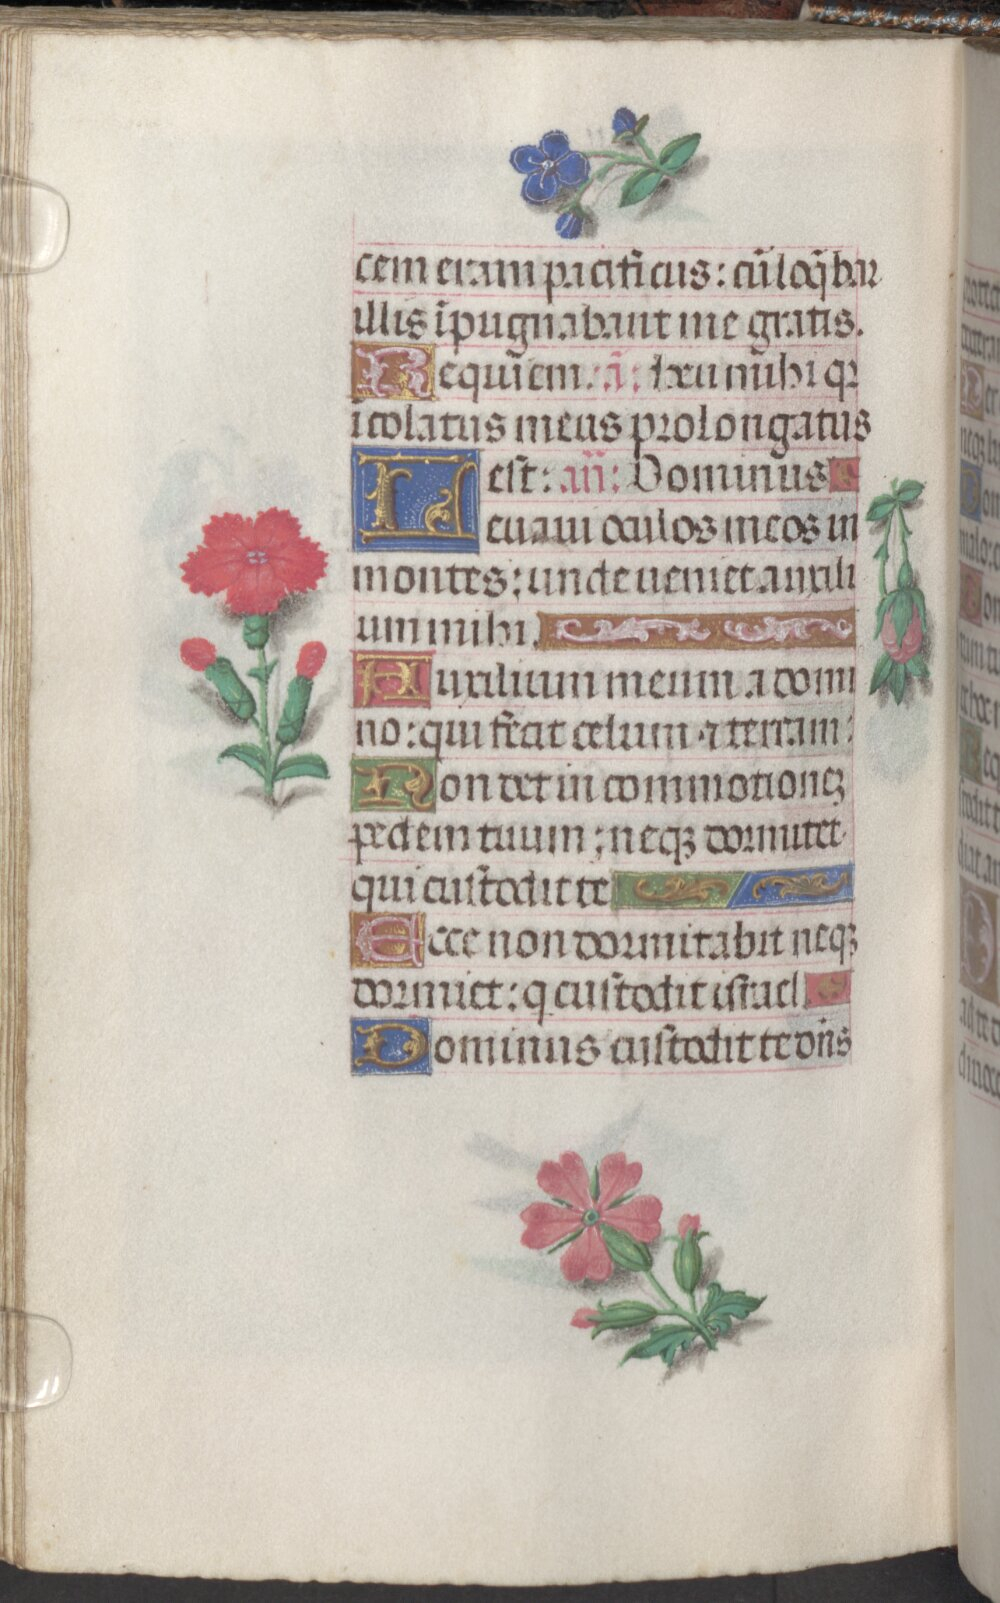 cem eram pacificus: cū loq̄bar
illis īpugnabant me gratis.
Requiem. ā: heu mihi qꝛ
īcolatus meus prolongatus
est: añ: Dominus
Leuaui oculos meos in
montes: unde ueniet auxili
um mihi.
Auxilium meum a domi
no: qui fecit celum ⁊ terram:
Non det in commotioneꝫ
pedem tuum: neqꝫ dormitet
qui custodit te
Ecce non dormitabit neqꝫ
dormiet: q custodit israel.
Dominus custodit te dn̄s